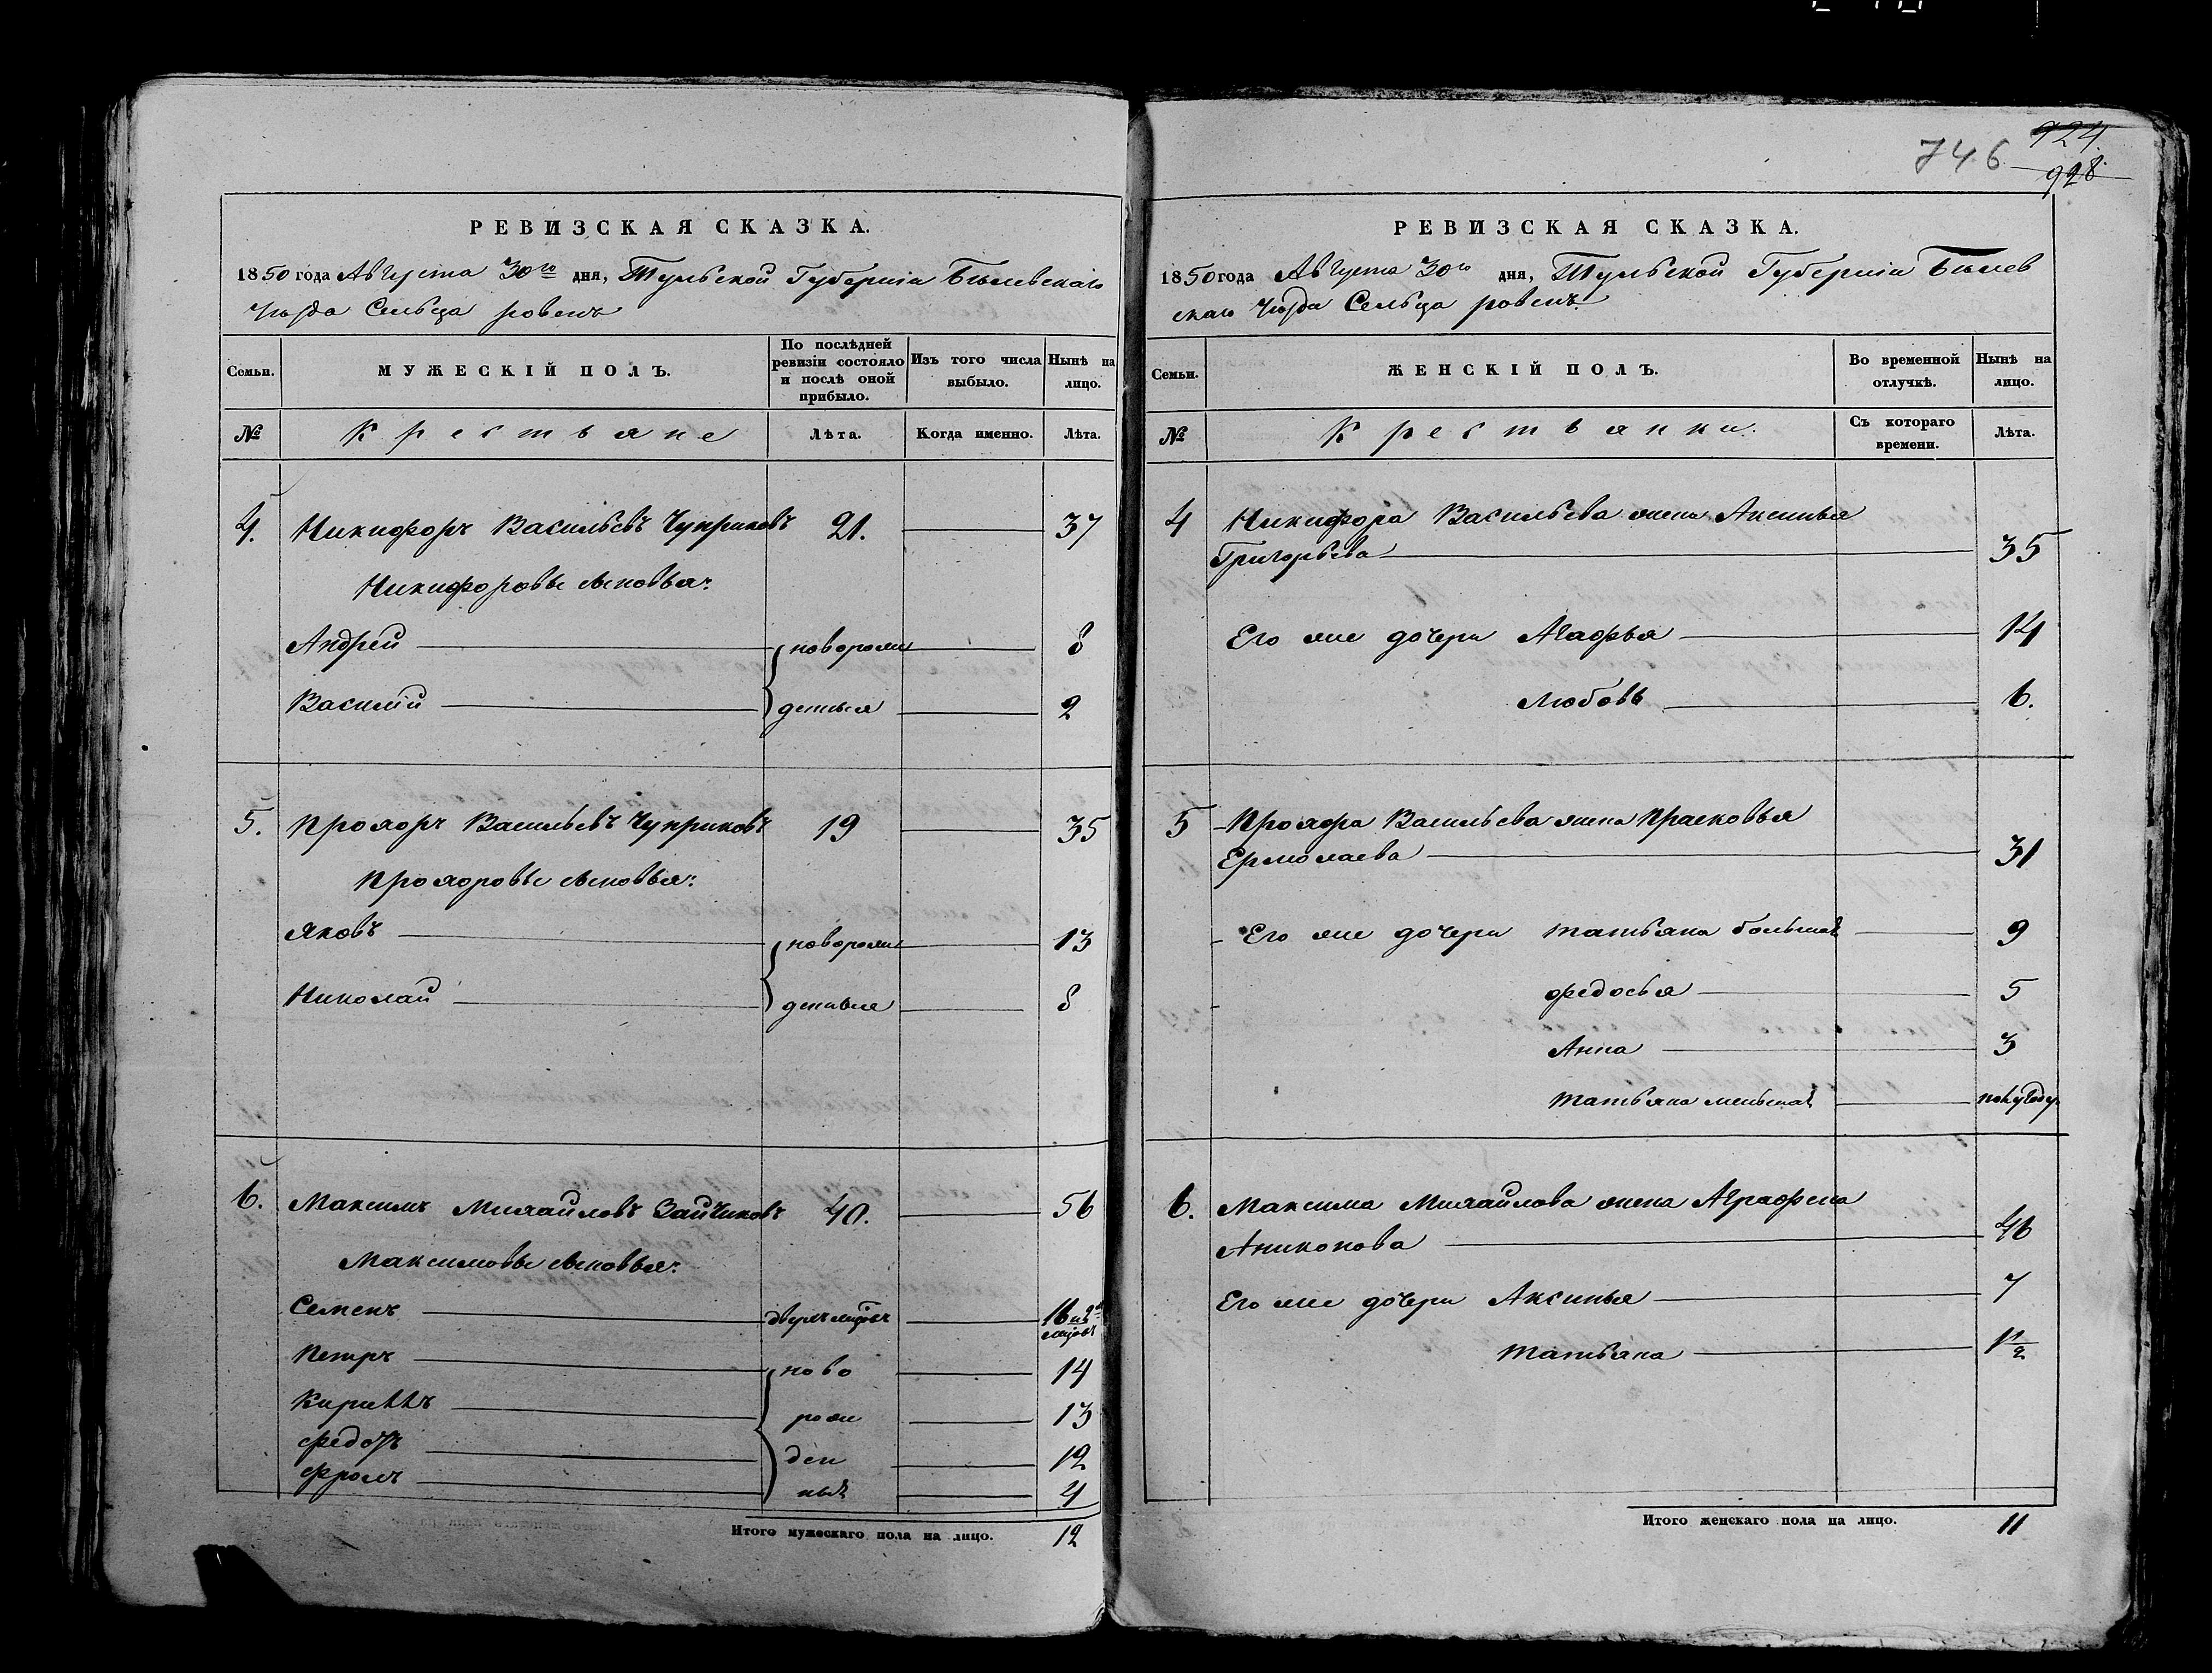 746 924
928
РЕВИЗСКАЯ СКАЗКА.
1850 года Августа 30го дня, Тульской Губерніи Бѣлевскаго
Уѣзда Сельца ровенъ
Семьи. МУЖЕСКІЙ ПОЛЪ. По послѣдней ревизіи состояло и послѣ оной прибыло. Изъ того числа выбыло. Нынѣ на лицо.
№ Крестьяне Лѣта. Когда именно. Лѣта.
4. Никифоръ Васильевъ Чуприковъ 21. 37
Никифоровы сыновья:
Андрей новорож 8
Василій денныя 2
5. Прохоръ Васильевъ Чуприковъ 19 35
Прохоровы сыновья:
Яковъ новорож 13
Николай денныя 8
6. Максимъ Михайловъ Зайчиковъ 40. 56
Максимовы сыновья:
Семенъ двухъ мѣсяцъ 16 и 2
мѣсяцъ
Петръ ново 14
Кириллъ рож 13
Федотъ ден 12
Фролъ ныѣ 4
Итого мужескаго пола на лицо. 12
РЕВИЗСКАЯ СКАЗКА.
1850 года Августа 30го дня, Тульской Губерніи Бѣлев
скаго Уѣзда Сельца ровенъ.
Семьи. ЖЕНСКІЙ ПОЛЪ. Во временной отлучкѣ. Нынѣ на лицо.
№ Крестьянки. Съ котораго времени. Лѣта.
4 Никифора Васильева жена Аксинья
Григорьева 35
Его же дочери Агафья 14
Любовь 6.
5 Прохора Васильева жена Прасковья
Ермолаева 31
Его же дочери Татьяна большаѣ 9
Федосья 5
Анна 3
Татьяна меньшаѣ полугоду
6. Максима Михайлова жена Аграфена
Аниконова 46
Его же дочери Аксинья 7
Татьяна 1 1/2
Итого женскаго пола на лицо. 11